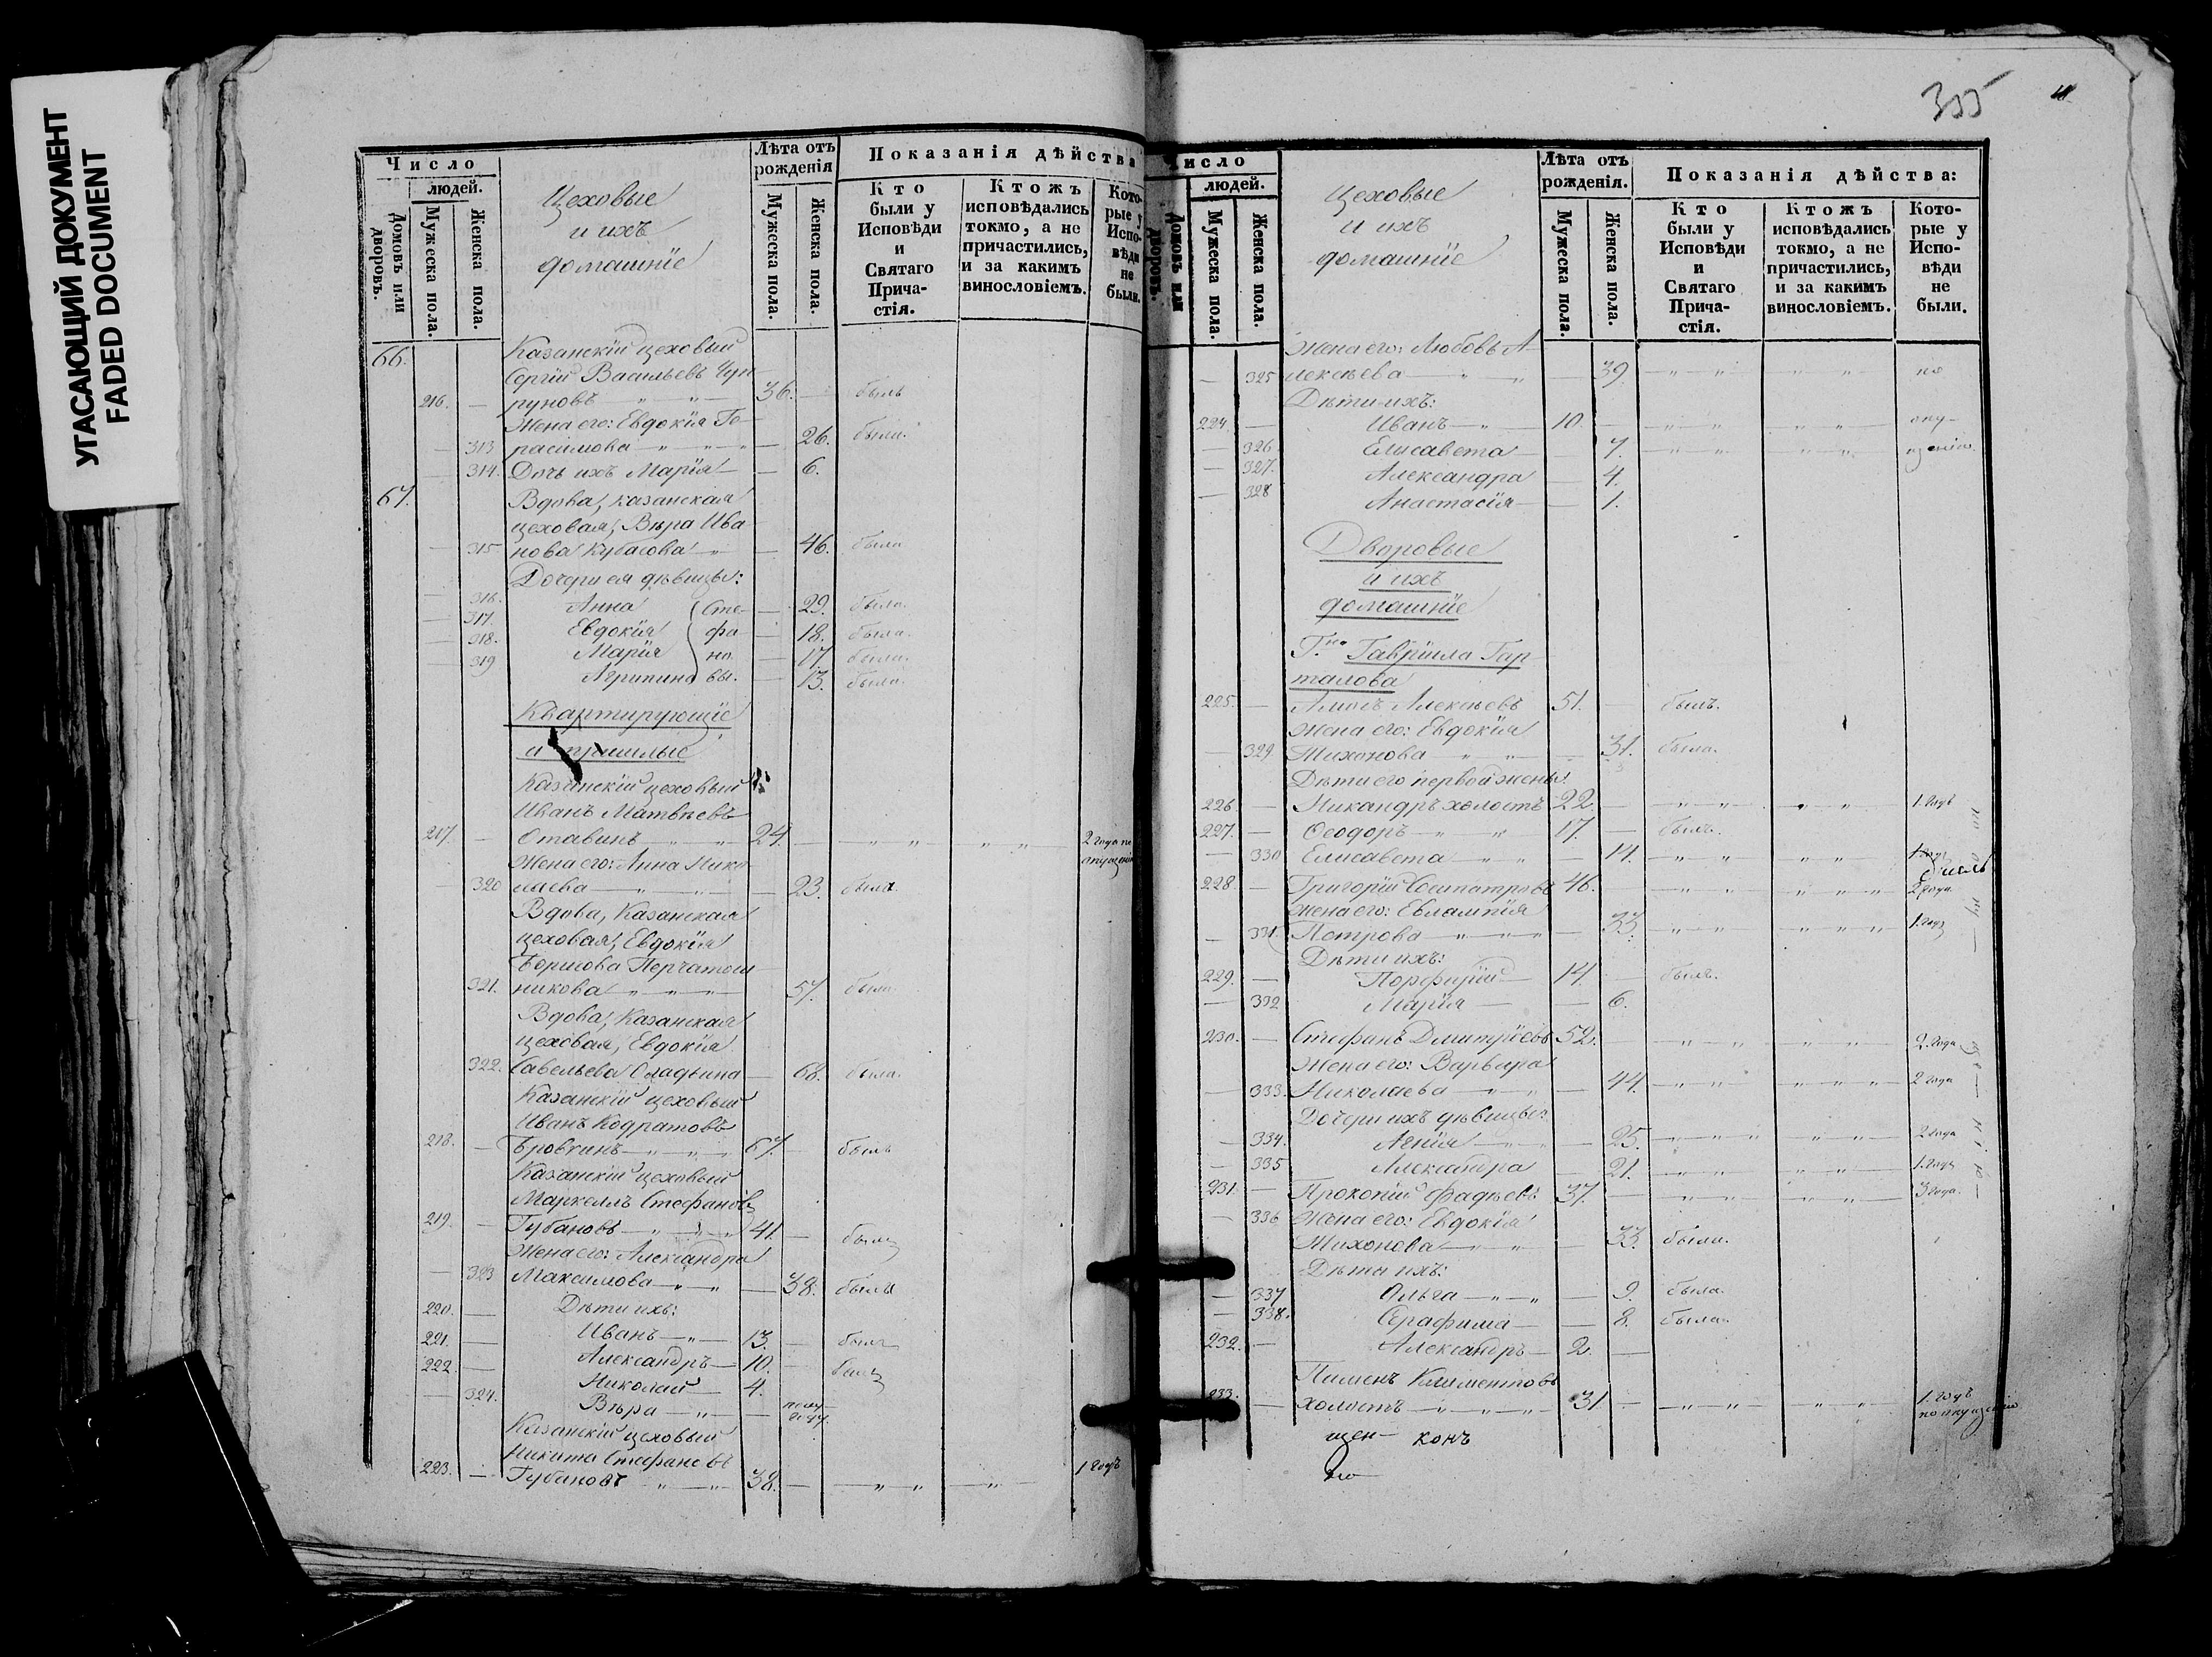 УГАСАЮЩИЙ ДОКУМЕНТ
FADED DOCUMENT
Число
людей.
Домовъ или дворовъ.
Мужеска пола.
Женска пола.
Цеховые
и ихъ
домашніе
Лѣта отъ рожденія
Мужеска пола.
Женска пола.
Показанія дѣйства
Кто были у Исповѣди и Святаго Причастія.
Ктожъ исповѣдались токмо, а не причастились, и за какимъ винословіемъ.
Которые у Исповѣди не были.
66. Казанскій цеховый
Сергій Васильевъ Чуп-
216. — руновъ — " — " — 36. — былъ
Жена его: Евдокія Ге-
— 313 расимова — " — " — 26. была.
— 314. Дочь ихъ Марія — — 6.
67. Вдова, казанская
цеховая, Вѣра Ива
— 315 нова Кубасова — " — 46. была
Дочери ея дѣвицы:
— 316. Анна (Сте- — 29. была.
— 317. Евдокія фа- — 18. была.
— 318. Марія но — 17. была.
— 319 Агрипина вы. — 13. была.
Квартирующіе
и пришлые
Казанскій цеховый
Иванъ Матвѣевъ
217. — Отавинъ — " — " — 24. — " — " — " — " — 2 года по
опущенію
Жена его: Анна Нико
— 320 лаева — " — " — 23. была.
Вдова, Казанская
цеховая, Евдокія
Борисова Перчаточ
321. никова — " — " — " — 57. была.
Вдова, Казанская
цеховая, Евдокія
322. Савельева Оладьина — 68. была.
Казанскій цеховый
Иванъ Кодратовъ
218. — Бровкинъ — " — " — 67. — былъ
Казанскій цеховый
Маркеллъ Стефановъ
219. — Губановъ — " — " — 41. — былъ
Жена его: Александра
— 323 Максимова — " — " — 38. была
220. — Дѣти ихъ:
221. — Иванъ — " — 13. — былъ
222. — Александръ — 10. — былъ
Николай — 4.
— 324. Вѣра — " — — полу-
году.
Казанскій цеховый
Никита Стефановъ
223. — Губановъ — " — " — 38. — " — " — " — 1 годъ
355
Число
людей.
Домовъ или дворовъ.
Мужеска пола.
Женска пола.
Цеховые
и ихъ
домашніе
Лѣта отъ рожденія.
Мужеска пола.
Женска пола.
Показанія дѣйства:
Кто были у Исповѣди и Святаго Причастія.
Ктожъ исповѣдались токмо, а не причастились, и за какимъ винословіемъ.
Которые у Исповѣди не были.
Жена его: Любовь А-
— 325 лексѣева — " — " — 39. — " — " — " — " — по
Дѣти ихъ:
224. — Иванъ — " — 10. — " — " — " — " — опу-
— 326 Елисавета — 7. — " — " — " — " — щенію.
— 327. Александра — 4.
— 328 Анастасія — — 1.
Дворовые
и ихъ
домашніе
Г.на Гавріила Гор-
талова
225. — Алексѣевъ 51. — былъ.
Жена его: Евдокія
— 329 Тихонова — " — " — 31. была.
Дѣти его первой жены:
226. — Никандръ холостъ 22. — " — " — " — " — 1. годъ
227. — Ѳеодоръ — " — " — 17. — былъ.
— 330 Елисавета — " — " — 14. — " — " — " — " — 1. годъ
228. — Григорій Сосипатровъ 46. — " — " — " — " — " — 2 года.
Жена его: Евлампія
— 331. Петрова — " — " — " — 33. — " — " — " — " — " — 1. годъ
Дѣти ихъ:
229. — Порфирій — 14. — былъ.
— 332 Марія — — 6.
230. — Стефанъ Дмитріевъ 52. — " — " — " — " — 2. года
Жена его: Варвара
— 333. Николаева — " — " — 44. — " — " — " — " — " — 2 года
Дочери ихъ дѣвицы:
— 334. Агнія — " — " — 25. — " — " — " — " — " — 2 года
— 335 Александра — 21. — " — " — " — " — 1. годъ
231. — Прокопій Фадѣевъ 37. — " — " — " — " — 3 года.
— 336 Жена его: Евдокія
Тихонова — " — " — 33. была.
Дѣти ихъ:
— 337 Ольга — " — " — 9. была.
— 338. Серафима — — 8. была.
232. — Александръ — 2. —
Пименъ Климентовъ
233. — холостъ — " — " — " — 31 — " — " — " — " — 1. годъ
по опущенію
щен- конъ